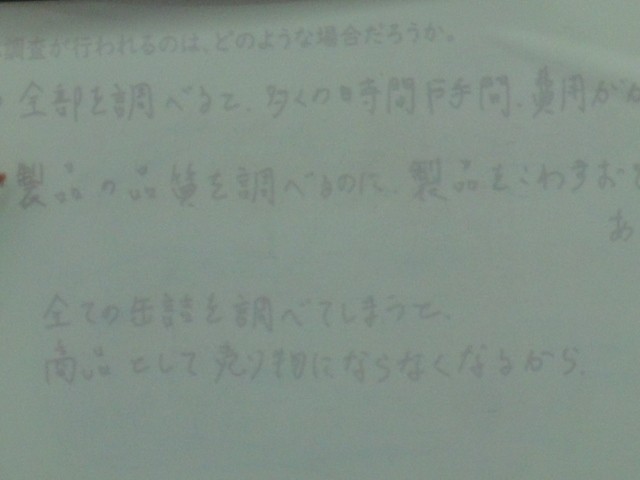 調査が行われるのは、どのような場合だろうか。
全部を調べると、多くの時間や手間、費用が
製品の品質を調べるのに、製品をこわすお
あ
全ての缶詰を調べてしまうと、
商品として売り物にならなくなるから。